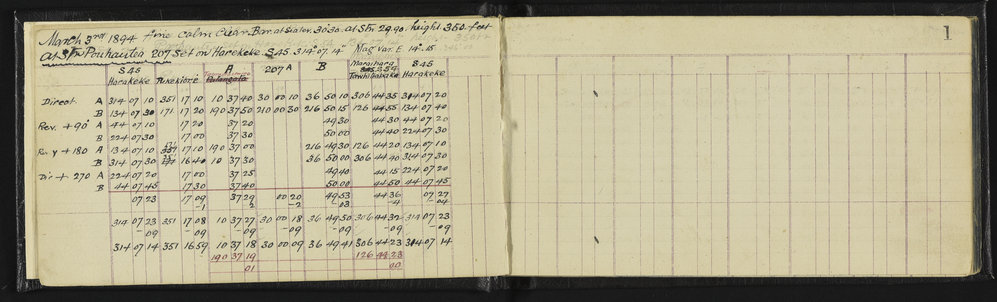 March 3rd 1894 fine calm clear Bar. at Station 30.30. at Stn 29.90. height 350. feet
At Stn Pouhautea 207 Set on Harekeke. S45. 314° 07' 14" Mag Var. E 14° 15
1
S45 A 207 A B Maraihara S45
Harakeke Pukekiore Patangata Harakeke
Direct. A 314 07 10 351 17 10 10 37 40 30 00 10 36 50 10 306 44 35 314 07 20
B 134 07 30 171 17 20 190 37 50 210 00 30 216 50 15 126 44 55 134 07 40
Rev. +90° A 44 07 10 17 20 37 20 49 30 44 30 44 07 20
B 224 07 30 17 00 37 30 50 00 44 40 224 07 30
Rev +180 A 134 07 10 17 10 190 37 00 216 49 30 126 44 20 134 07 10
B 314 07 30 16 40 10 37 30 36 50 00 306 44 40 314 07 30
Dir + 270 A 224 07 20 17 00 37 25 49 40 44 15 224 07 20
B 44 07 45 17 30 37 40 50 00 44 50 44 07 45
07 23 17 09 37 29 00 20 49 53 44 36 07 27
-1 2 -2 -03 -4 -04
314 07 23 351 17 08 10 37 27 30 00 18 36 49 50 306 44 32 314 07 23
-09 -09 -09 -09 -09 -09 -09
314 07 14 351 16 59 10 37 18 30 00 09 36 49 41 306 44 23 314 07 14
190 37 19 126 44 23
01 00